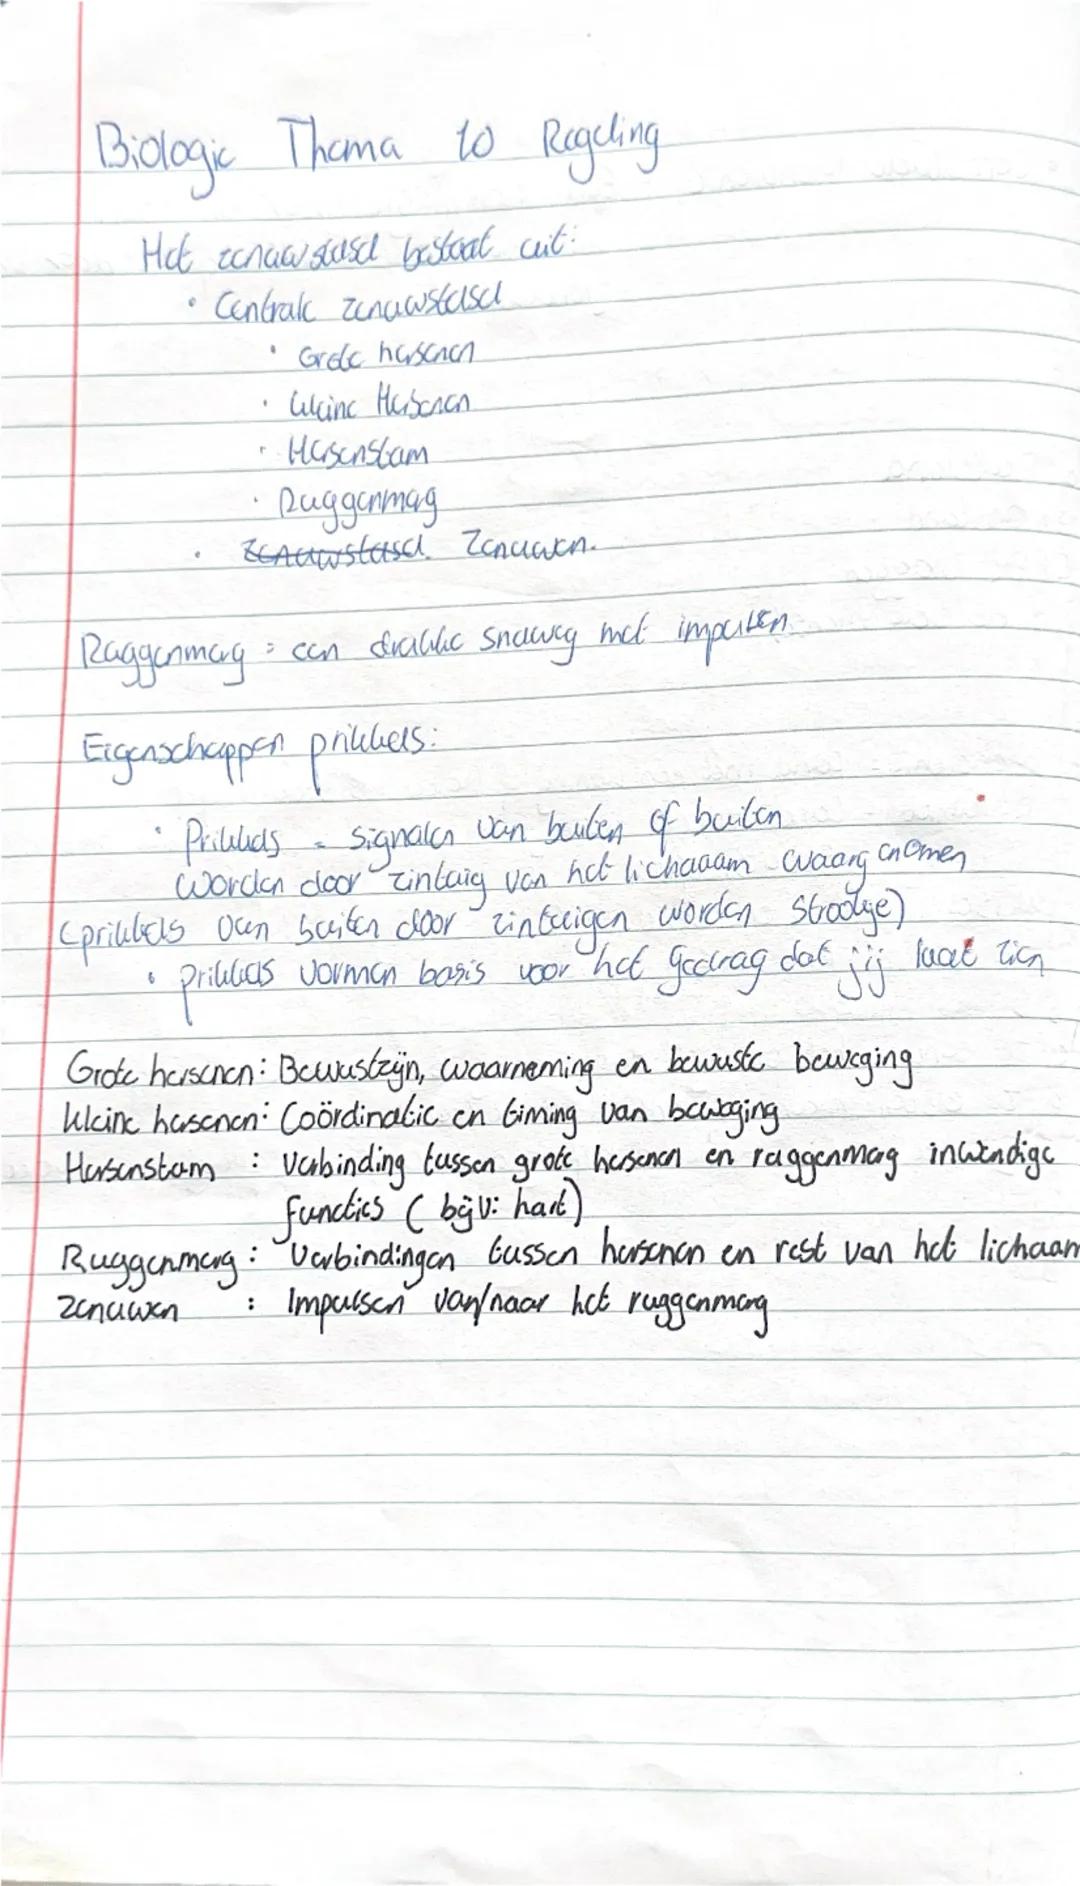 Biologie Thema 10 Regeling
Het zenuwstelsel bestaat uit:
• Centrale zenuwstelsel
• Grote hersenen
• kleine Hersenen
• Hersenstam
• Ruggenmerg
• Zenuwstelsel. Zenuwen.
Ruggenmerg = een drukke snelweg met impulsen
Eigenschappen prikkels:
• Prikkels = signalen van buiten of buiten
worden door zintuig van het lichaaam waargenomen
(prikkels van buiten door zintuigen worden
• prikkels vormen basis voor het gedrag dat jij laat zien
Grote hersenen: Bewustzijn, waarneming en bewuste beweging
kleine hersenen: Coördinatie en timing van beweging
Hersenstam : Verbinding tussen grote hersenen en ruggenmerg inwendige
functies ( bijv: hart)
Ruggenmerg : Verbindingen tussen hersenen en rest van het lichaam
zenuwen : Impulsen van/naar het ruggenmerg